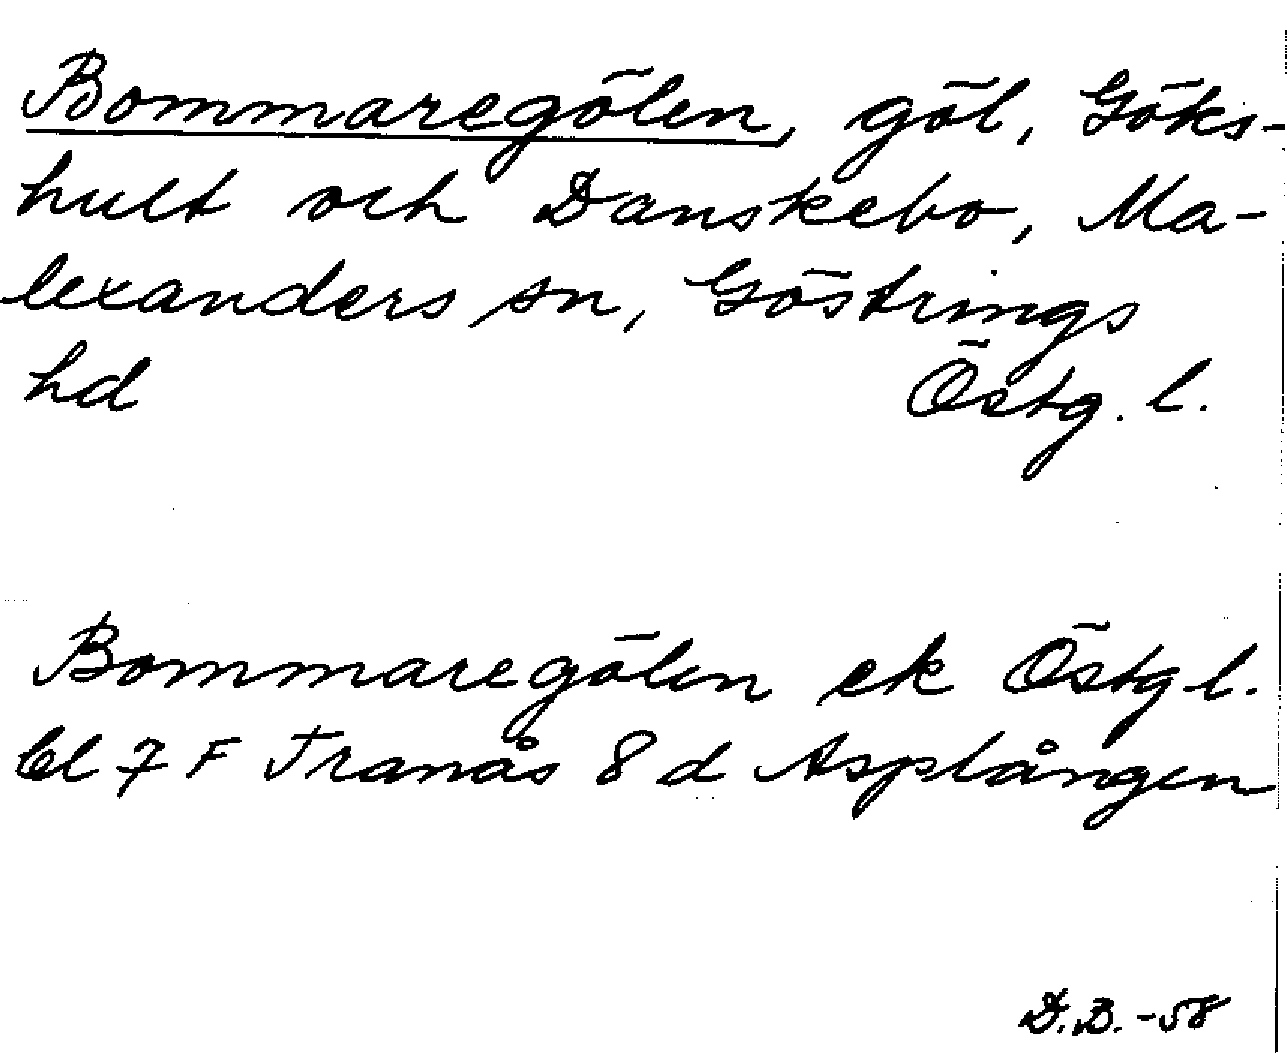 Bommaregölen, göl, Göks-
hult och Danskebo, Ma-
lexanders sn, Göstrings
hd Östg. l.
Bommaregölen ek Östg l.
bl 7 F Tranås 8 d Asplången
D.B. -58